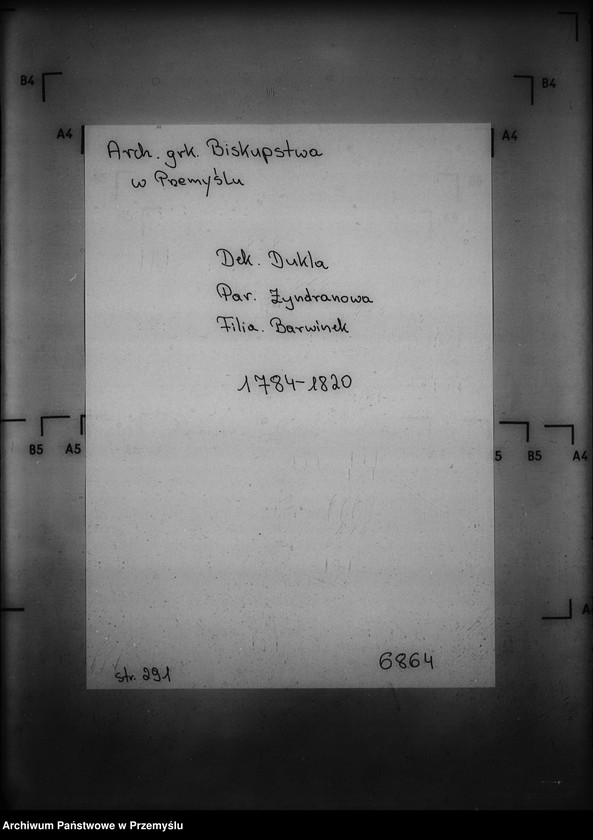 B4
B4
A4
A4
Arch. grk. Biskupstwa
w Przemyślu
Dek. Dukla
Par. Zyndranowa
Filia. Barwinek
1784-1820
B5 A5
5 B5 A4
A
str. 291
6864
Archiwum Państwowe w Przemyślu